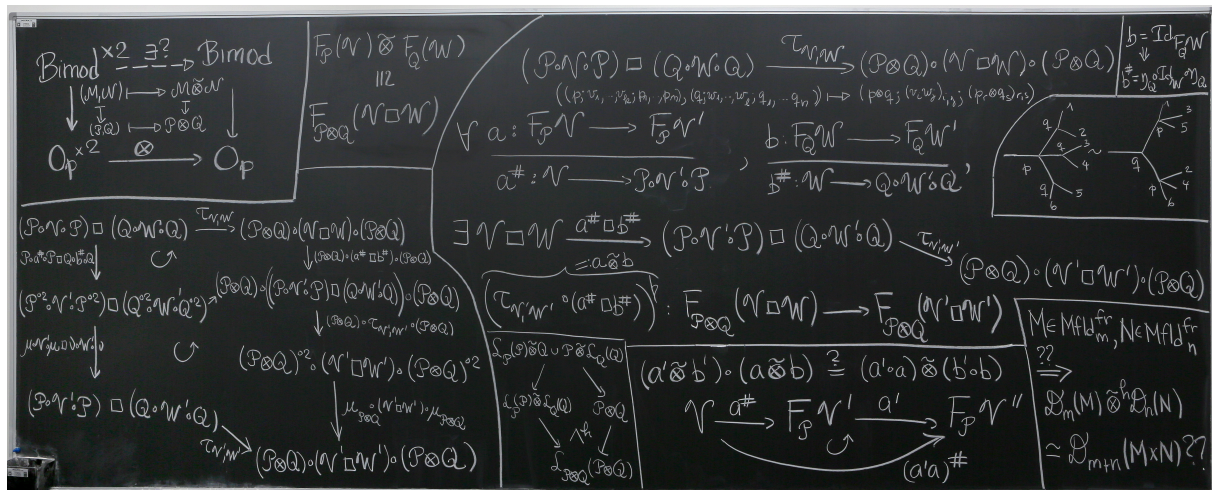 Bimod ×2 ∃? Bimod
(M,N) ⟼ M⊗̃N
(P,Q) ⟼ P⊗Q
Op ×2 ⊗ Op
F_P(V) ⊗̃ F_Q(W)
≅
F_{P⊗Q}(V□W)
(P∘V∘P) □ (Q∘W∘Q) τ_{V,W} → (P⊗Q)∘(V□W)∘(P⊗Q)
b = Id_{F_Q W}
⇓
b^# = η_Q∘Id_W∘η_Q
∀ a : F_P V → F_P V' , b : F_Q W → F_Q W' ,
a^# : V → P∘V'∘P b^# : W → Q∘W'∘Q
q 2 3 4 p q 5 6 ~ q p 3 5 p 2 4 6
∃ V□W a^# □ b^# → (P∘V'∘P) □ (Q∘W'∘Q) τ_{V',W'} → (P⊗Q)∘(V'□W')∘(P⊗Q)
:= a⊗̃b
(τ_{V',W'} ∘ (a^# □ b^#)) : F_{P⊗Q}(V□W) → F_{P⊗Q}(V'□W')
(P∘V∘P) □ (Q∘W∘Q) τ_{V,W} → (P⊗Q)∘(V□W)∘(P⊗Q)
P∘a^#∘P□Q∘b^#∘Q (P⊗Q)∘(a^# □ b^#)∘(P⊗Q)
(P^{∘2}∘V'∘P^{∘2}) □ (Q^{∘2}∘W'∘Q^{∘2}) → (P⊗Q)∘((P∘V'∘P) □ (Q∘W'∘Q))∘(P⊗Q)
(P⊗Q)∘τ_{V',W'}∘(P⊗Q)
(P⊗Q)^{∘2}∘(V'□W')∘(P⊗Q)^{∘2}
μ_{P⊗Q}∘(V'□W')∘μ_{P⊗Q}
(P∘V'∘P) □ (Q∘W'∘Q)
τ_{V',W'} (P⊗Q)∘(V'□W')∘(P⊗Q)
L_P(P)⊗̃Q ∪ P⊗̃L_Q(Q)
L_P(P)⊗̃L_Q(Q) P⊗Q
h
L_{P⊗Q}(P⊗Q)
(a'⊗̃b')∘(a⊗̃b) ≟ (a'∘a)⊗̃(b'∘b)
V a^# → F_P V' a' → F_P V''
(a'a)^#
M∈Mfld_m^{fr}, N∈Mfld_n^{fr}
??
⟹
D_m(M) ⊗̃^h D_n(N)
≃ D_{m+n}(M×N)??